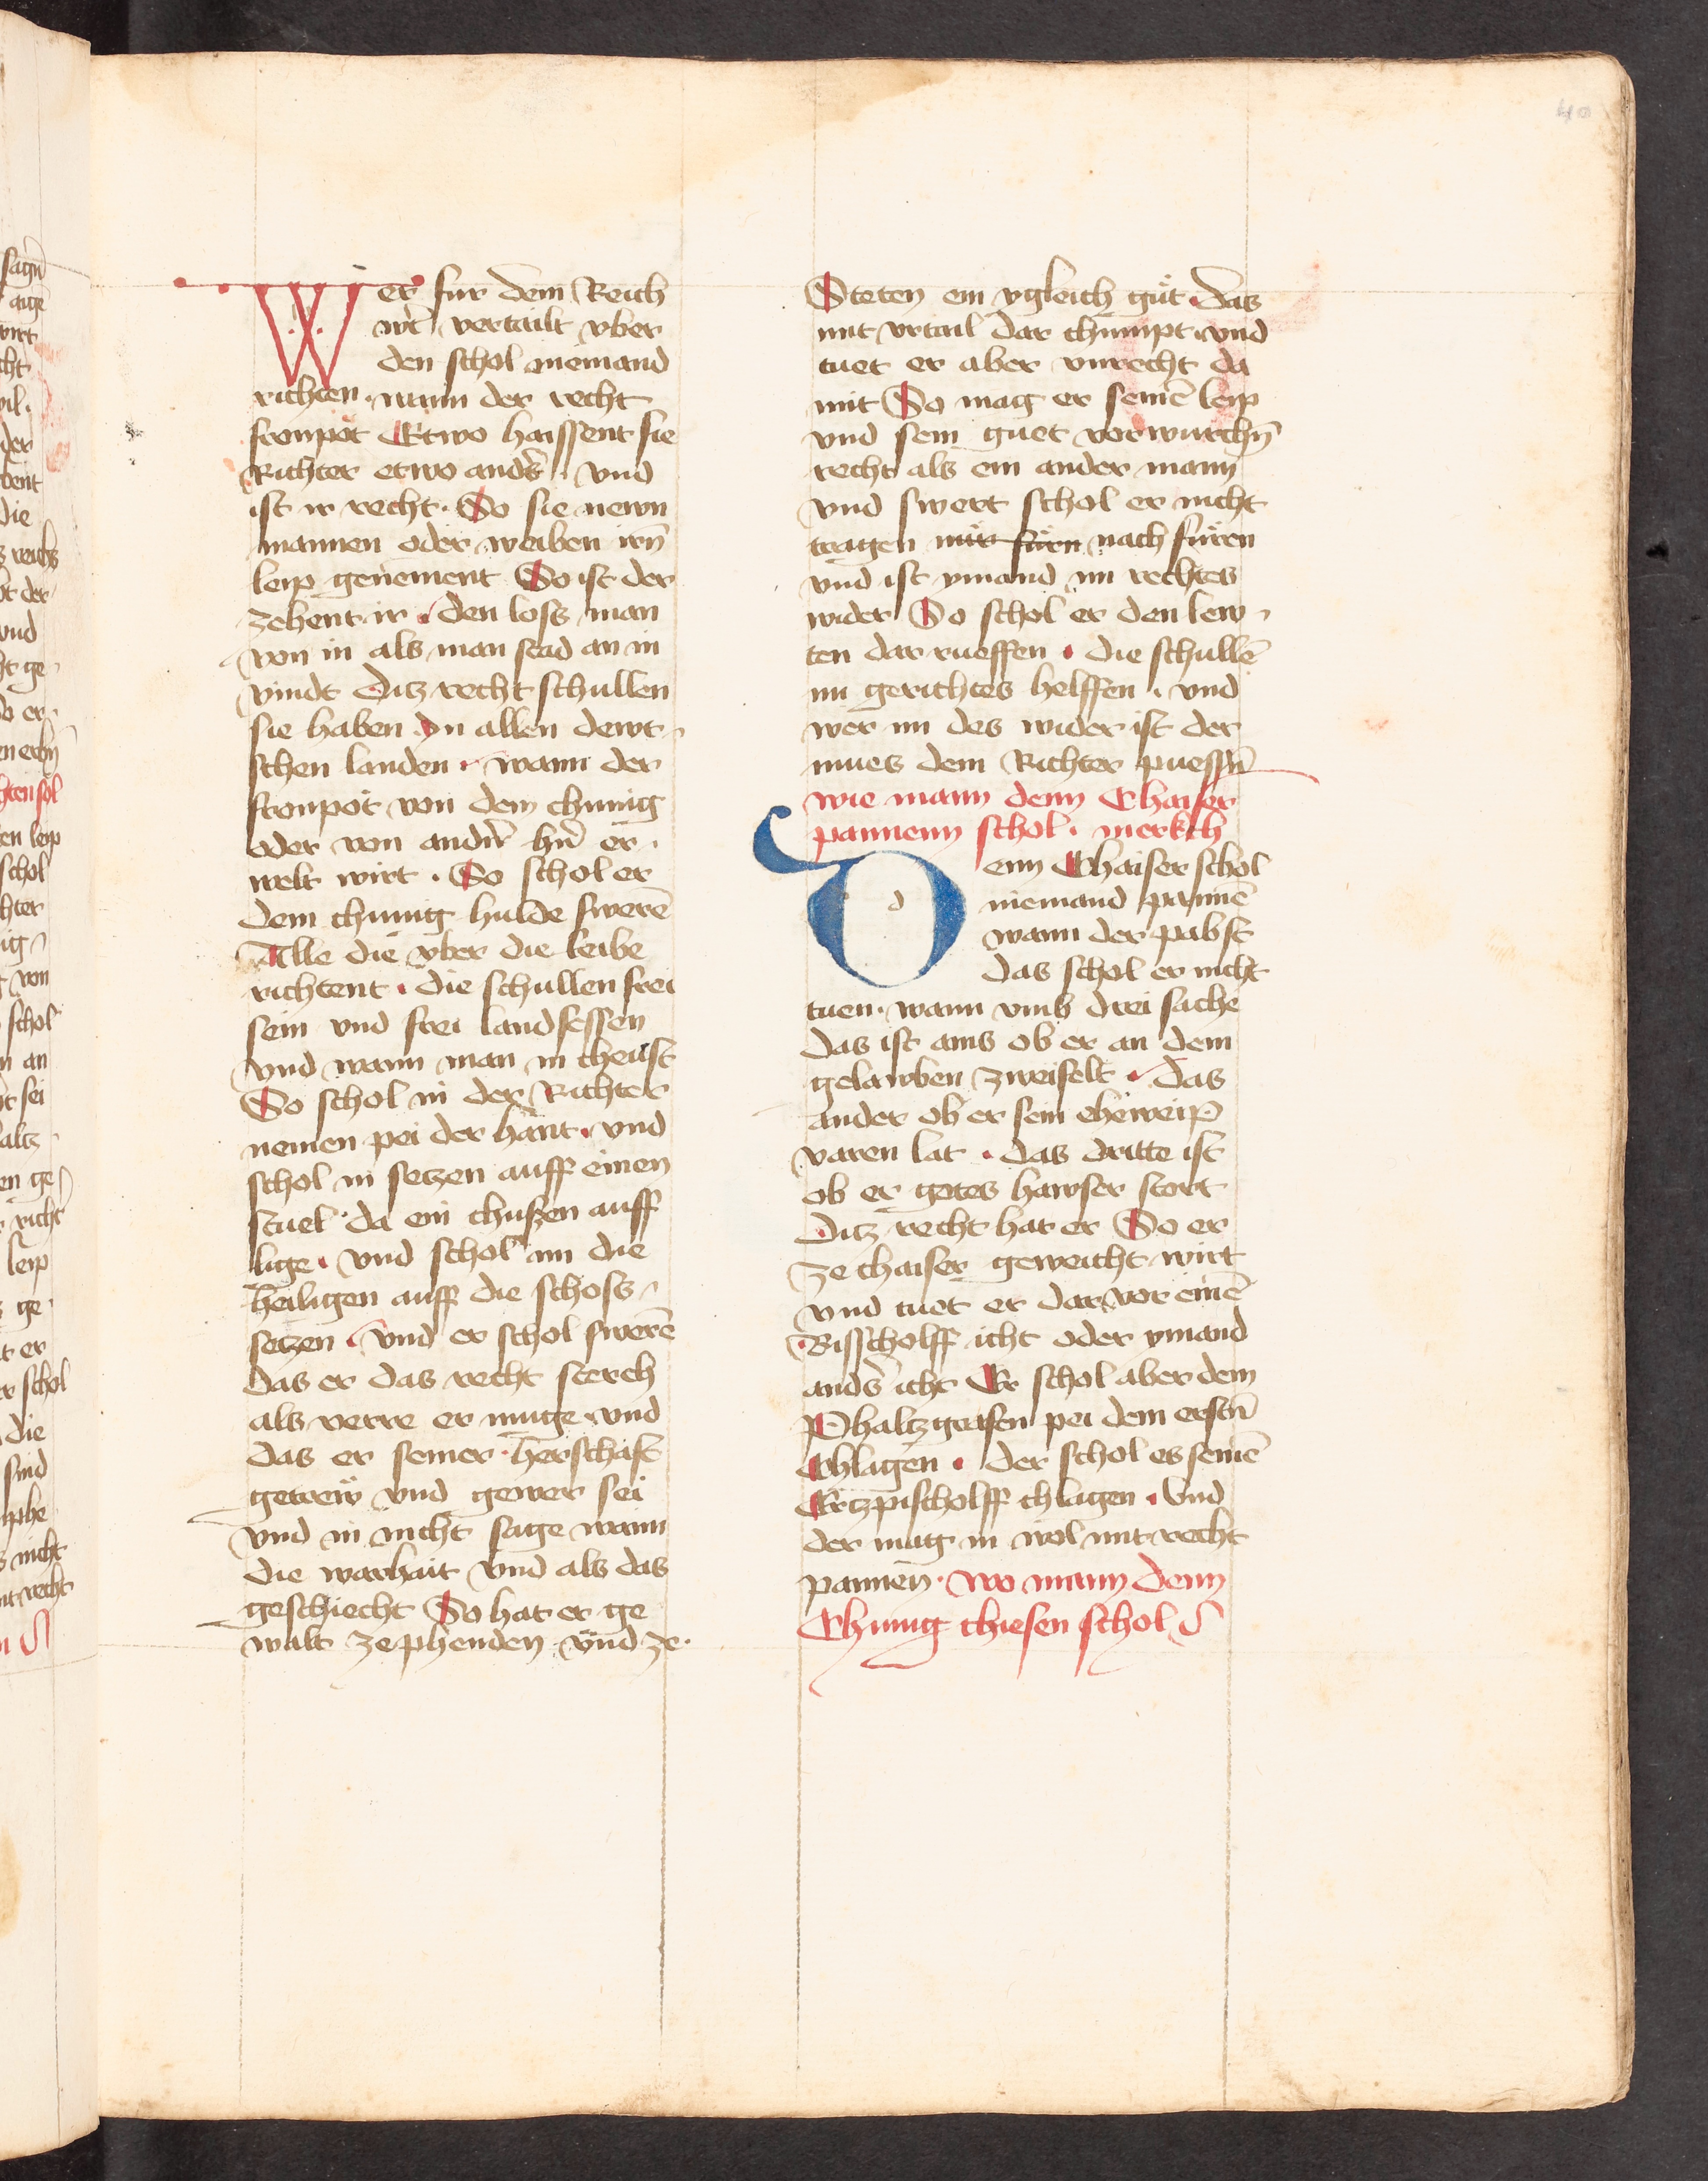 40
Wer fur dem Reich
wirt vertailt vber
den schol niemand
richten · wann der recht
fronpot Etwo haissent sie
Richter etwo anders · vnd
ist ir recht · So sie newn
mannen oder weiben irn̄
leip genement So ist der
zehent ir · den loss man
von in als man stad an in
vindt Ditz recht schullen
sie haben Jn allen dewt-
schen landen · wann der
fronpot von dem chunig
oder von andr̄n hr̄n er-
welt wirt · So schol er
dem chunig hulde swerē
Alle die vber die leibe
richtent · die schullen frei
sein vnd frei landsessen
vnd wann man in cheust
So schol in der Richter
nemen pei der hant · vnd
schol in setzen auff einen
stuel · da ein chussen auff
lige · vnd schol im die
heiligen auff die schoss
setzen · vnd er schol swerē
das er das recht sterch
als verre er muge · vnd
das er seiner herschaft
getrew vnd gewer sei
vnd in nicht sage wann
die warhait vnd als das
geschiecht So hat er ge
walt ze phenden vnd ze
Steten ein ygleich gut · das
mit vrtail dar chumpt · vnd
tuet er aber vnrecht da
mit So mag er seinē leip
vnd sein guet verwurchn̄
recht als ein ander mann
vnd swert schol er nicht
tragen mit furn nach furen
vnd ist ymand im rechtes
wider So schol er den lew-
ten dar rueffen · die schullē
im gerichtes helffen · vnd
wer im des wider ist der
mues dem Richter puessn̄
wie mann denn Chaiser
pannenn schol · merkch
Denn Chaiser schol
niemand pannē
wann der pabst
das schol er nicht
tuen · wann vmb drei sache
das ist ains ob er an dem
gelawben zweifelt · das
ander ob er sein eheweip
varen lat · das dritte ist
ob er gotes hawser stort
Ditz recht hat er So er
ze chaiser geweicht wirt
vnd tuet er dar vor einē
Bisscholff icht oder ymand
anders icht Er schol aber dem
Phaltzgrafen pei dem erstn̄
Chlagen · der schol es seinē
Ertzpischolff chlagen · Vnd
der mag in wol mit recht
pannen · wo mann denn
Chunig chiesen schol